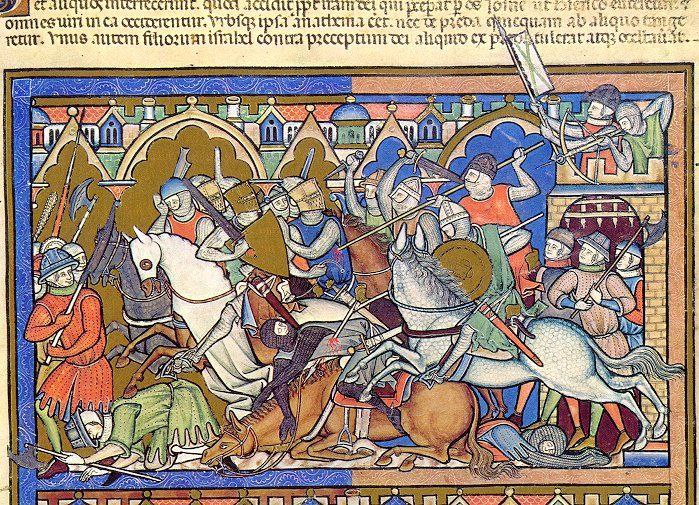 et aliquos interfecerunt. quod accidit ppt iram dei qui precepat p os Iosue ut Ierico
omnes uiri in ea occiderentur. Vrbsq; ipsa anathema eet. nec de preda quicquam ab aliquo tange
retur. Vnus autem filiorum israhel contra preceptum dei aliquid ex tulerat atq;